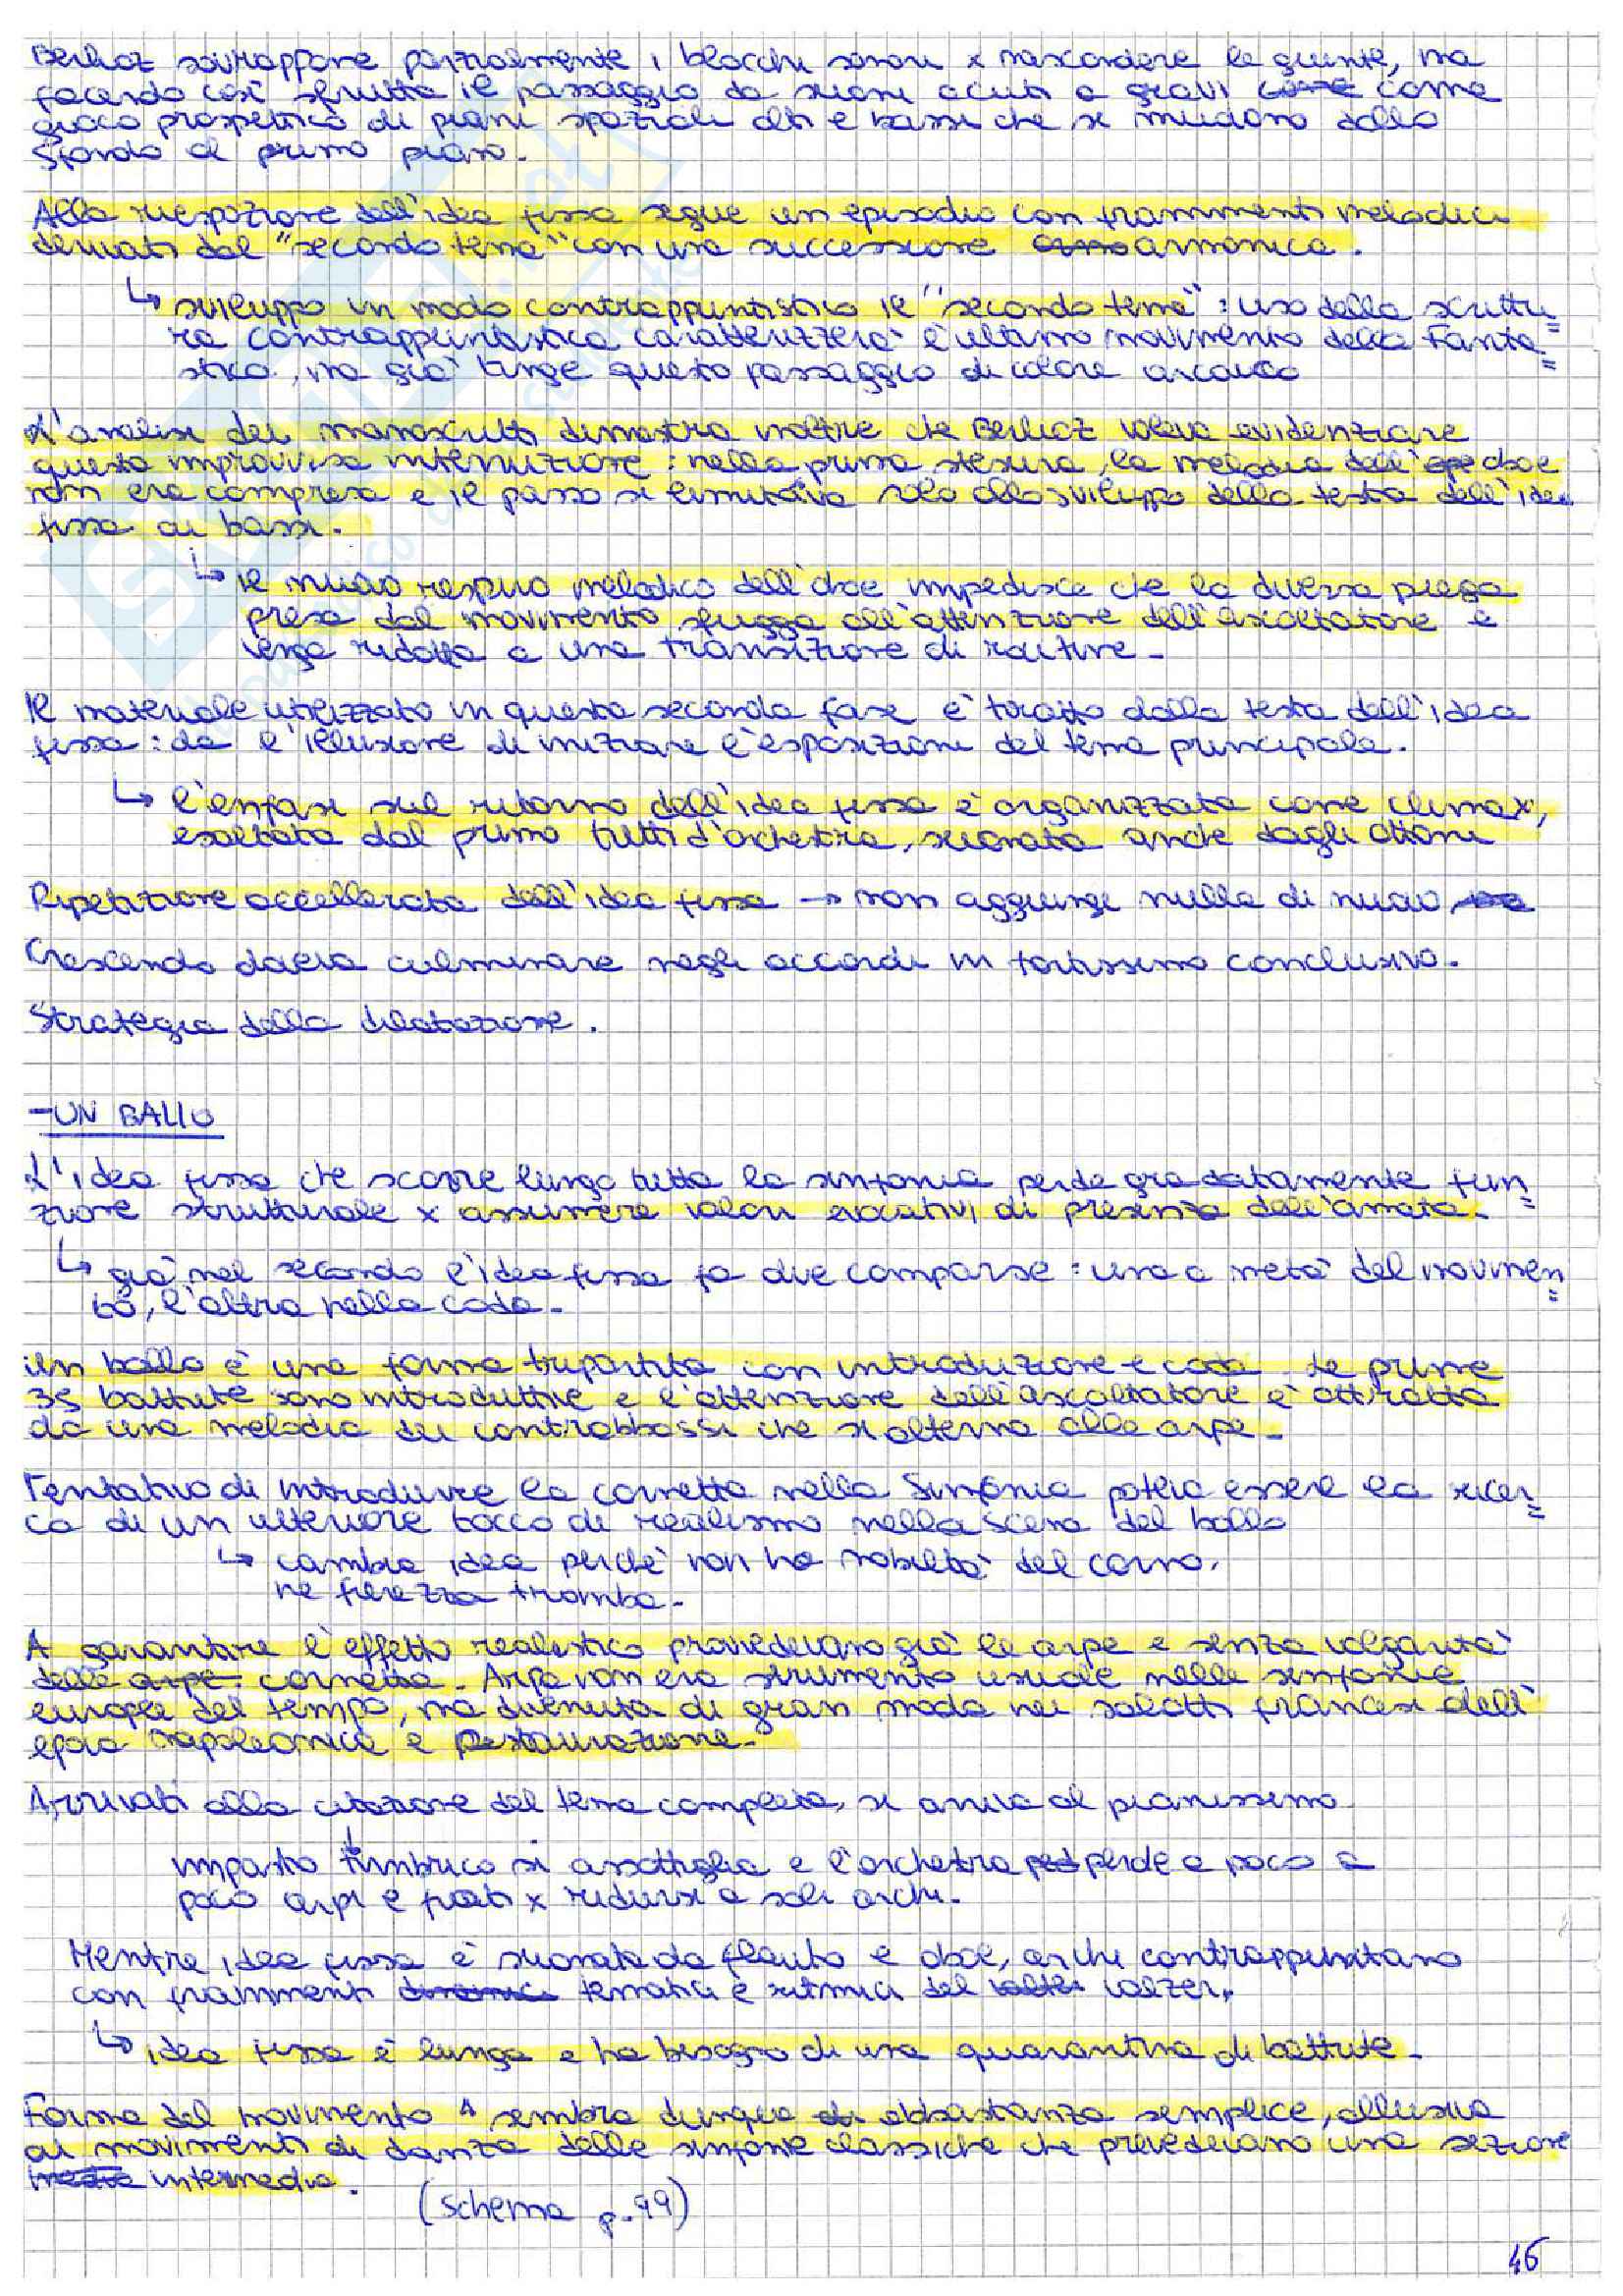 Berlioz sovrappone parzialmente i blocchi sonori x nascondere le giunte, ma
facendo così sfrutta il passaggio da suoni acuti a gravi come
gioco prospettico di piani spaziali alti e bassi che si muovono dallo
sfondo al primo piano.
Alla riesposizione dell'idea fissa segue un episodio con frammenti melodici
derivati dal "secondo tema" con una successione armonica.
↳ sviluppo in modo contrappuntistico il "secondo tema": uso della scrittu=
ra contrappuntistica caratterizzerà l'ultimo movimento della Fanta=
stica, ma già tinge questo passaggio di colore arcaico
L'analisi dei manoscritti dimostra inoltre che Berlioz voleva evidenziare
questa improvvisa interruzione: nella prima stesura, la melodia dell'oboe
non era compresa e il passo si limitava solo allo sviluppo della testa dell'idea
fissa ai bassi.
↳ il nuovo respiro melodico dell'oboe impedisce che la diversa piega
presa dal movimento sfugga all'attenzione dell'ascoltatore e
venga ridotta a una transizione di routine.
Il materiale utilizzato in questa seconda fase è tratto dalla testa dell'idea
fissa: dà l'illusione di iniziare l'esposizione del tema principale.
↳ l'enfasi sul ritorno dell'idea fissa è organizzata come climax,
esaltata dal primo tutti d'orchestra, suonata anche dagli ottoni
Ripetizione accellerata dell'idea fissa → non aggiunge nulla di nuovo
Crescendo doveva culminare negli accordi in fortissimo conclusivo.
Strategia della dilatazione.
- UN BALLO
L'idea fissa che scorre lungo tutta la sinfonia perde gradatamente fun=
zione strutturale x assumere valori evocativi di presenza dell'amata.
↳ già nel secondo l'idea fissa fa due comparse: una a metà del movimen=
to, l'altra nella coda.
Un ballo è una forma tripartita con introduzione e coda. Le prime
35 battute sono introduttive e l'attenzione dell'ascoltatore è attiratta
da una melodia dei contrabbassi che si alterna alle arpe.
Tentativo di introdurre la cornetta nella Sinfonia poteva essere la ricer=
ca di un ulteriore tocco di realismo nella scena del ballo
↳ cambia idea perché non ha nobiltà del corno,
né fierezza tromba.
A garantire l'effetto realistico provvedevano già le arpe e senza volgarità
delle arpe cornetta. Arpa non era strumento usuale nelle sinfonie
europee del tempo, ma divenuta di gran moda nei salotti francesi dell'
epoca napoleonica e Restaurazione.
Arrivati alla citazione del tema completa, si arriva al pianissimo
↓
impasto timbrico si assottiglia e l'orchestra perde a poco a
poco arpe e fiati x ridursi a soli archi.
Mentre idea fissa è suonata da flauto e oboe, archi contrappuntano
con frammenti tematici e ritmici del valzer.
↳ idea fissa è lunga e ha bisogno di una quarantina di battute.
Forma del movimento sembra dunque abbastanza semplice, allusiva
ai movimenti di danza delle sinfonie classiche che prevedevano una sezione
intermedia.
(schema p. 99)
46